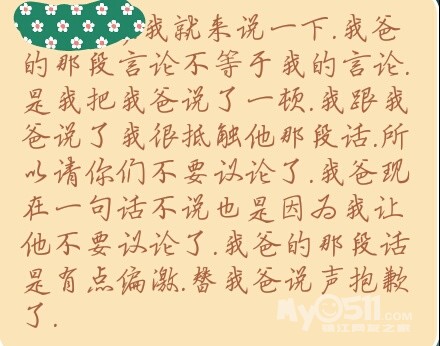 我就来说一下.我爸
的那段言论不等于我的言论.
是我把我爸说了一顿.我跟我
爸说了我很抵触他那段话.所
以请你们不要议论了.我爸现
在一句话不说也是因为我让
他不要议论了.我爸的那段话
是有点偏激.替我爸说声抱歉
了.
My0511.com